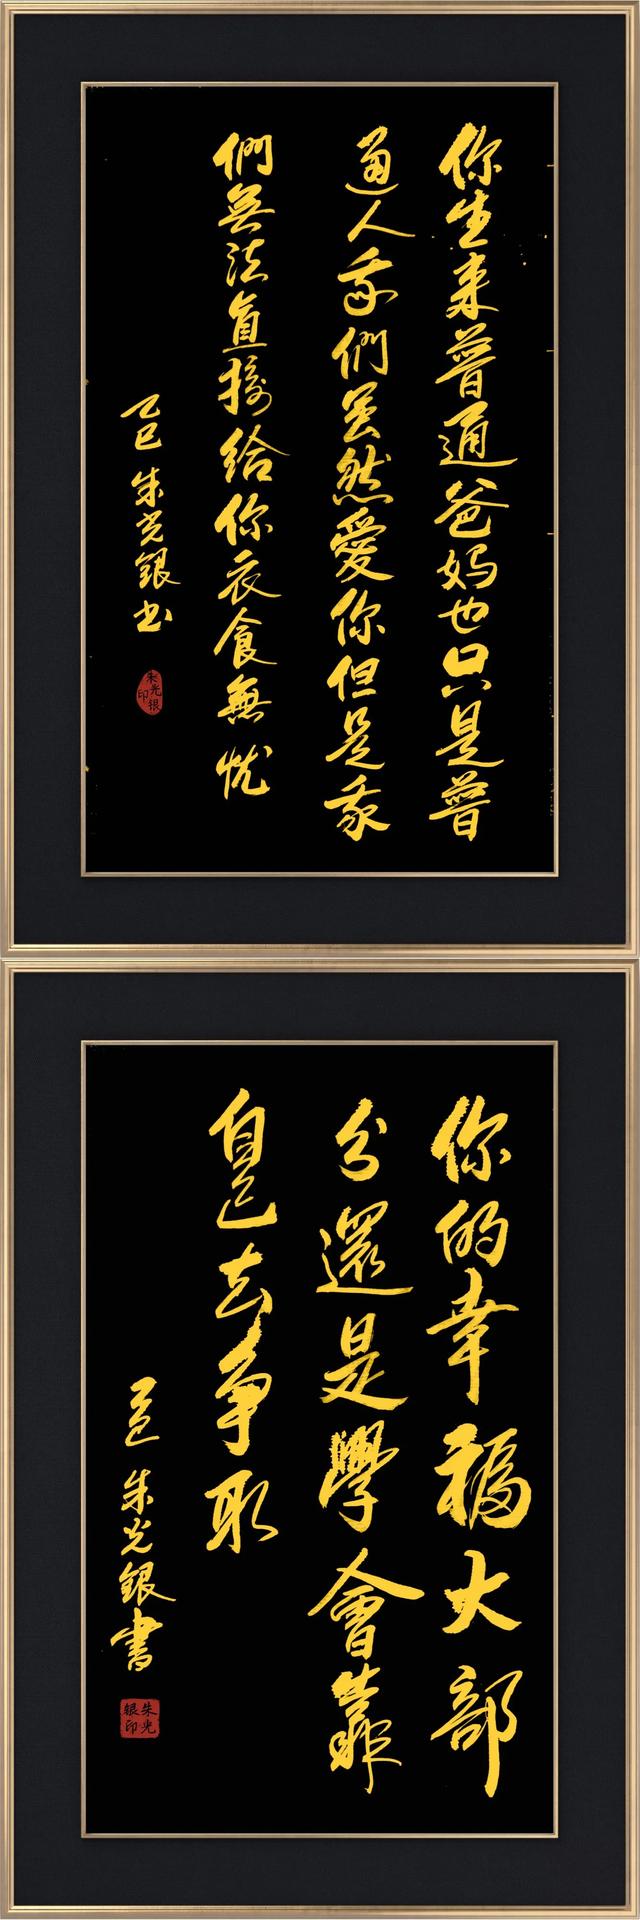 你生来普通爸妈也只是普
通人我們虽然愛你但是我
們無法直接给你衣食無忧
乙巳 朱光銀书
朱光银印
你的幸福大部
分還是學會靠
自己去争取
乙巳 朱光銀書
朱光银印